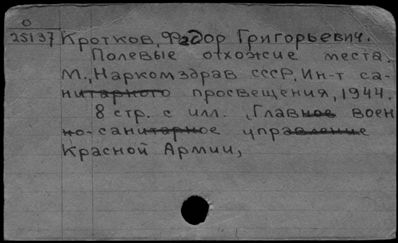 О
25137 Кротков, Федор Григорьевич.
Полевые отхожие места.
М., Наркомздрав СССР, Ин-т са-
нитарного просвещения, 1944.
8 стр. с илл. , Главное воен
но-санитарное управление
Красной Армии,